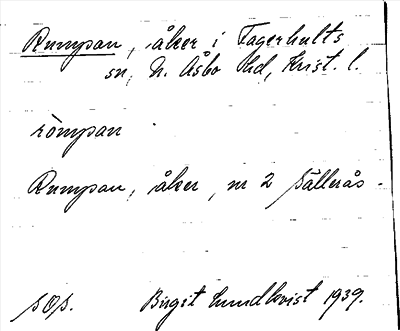 Rumpan, åker i Fagerhults
sn, N. Åsbo hd, Krist. l.
ròmpan
Rumpan, åker, nr 2 Sälleråς.
sOs. Birgit Lundkvist 1939.